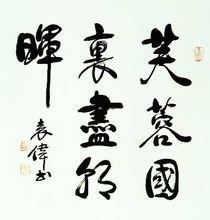 芙蓉國
裏盡朝
暉
袁偉书